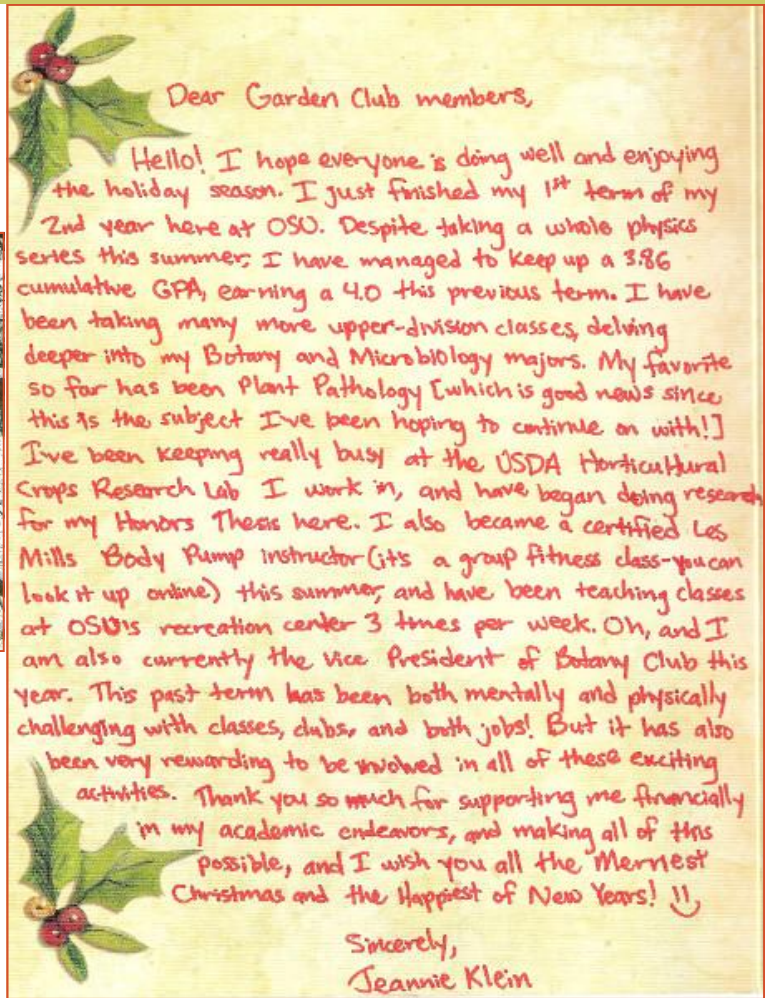 Dear Garden Club members,
Hello! I hope everyone is doing well and enjoying
the holiday season. I just finished my 1st term of my
2nd year here at OSU. Despite taking a whole physics
series this summer, I have managed to keep up a 3.86
cumulative GPA, earning a 4.0 this previous term. I have
been taking many more upper-division classes, delving
deeper into my Botany and Microbiology majors. My favorite
so far has been Plant Pathology [which is good news since
this is the subject I've been hoping to continue on with!]
I've been keeping really busy at the USDA Horticultural
Crops Research Lab I work in, and have began doing research
for my Honors Thesis here. I also became a certified Les
Mills Body Pump instructor (it's a group fitness class-you can
look it up online) this summer, and have been teaching classes
at OSU's recreation center 3 times per week. Oh, and I
am also currently the Vice President of Botany Club this
year. This past term has been both mentally and physically
challenging with classes, clubs, and both jobs! But it has also
been very rewarding to be involved in all of these exciting
activities. Thank you so much for supporting me financially
in my academic endeavors, and making all of this
possible, and I wish you all the Merriest
Christmas and the Happiest of New Years! :)
Sincerely,
Jeannie Klein